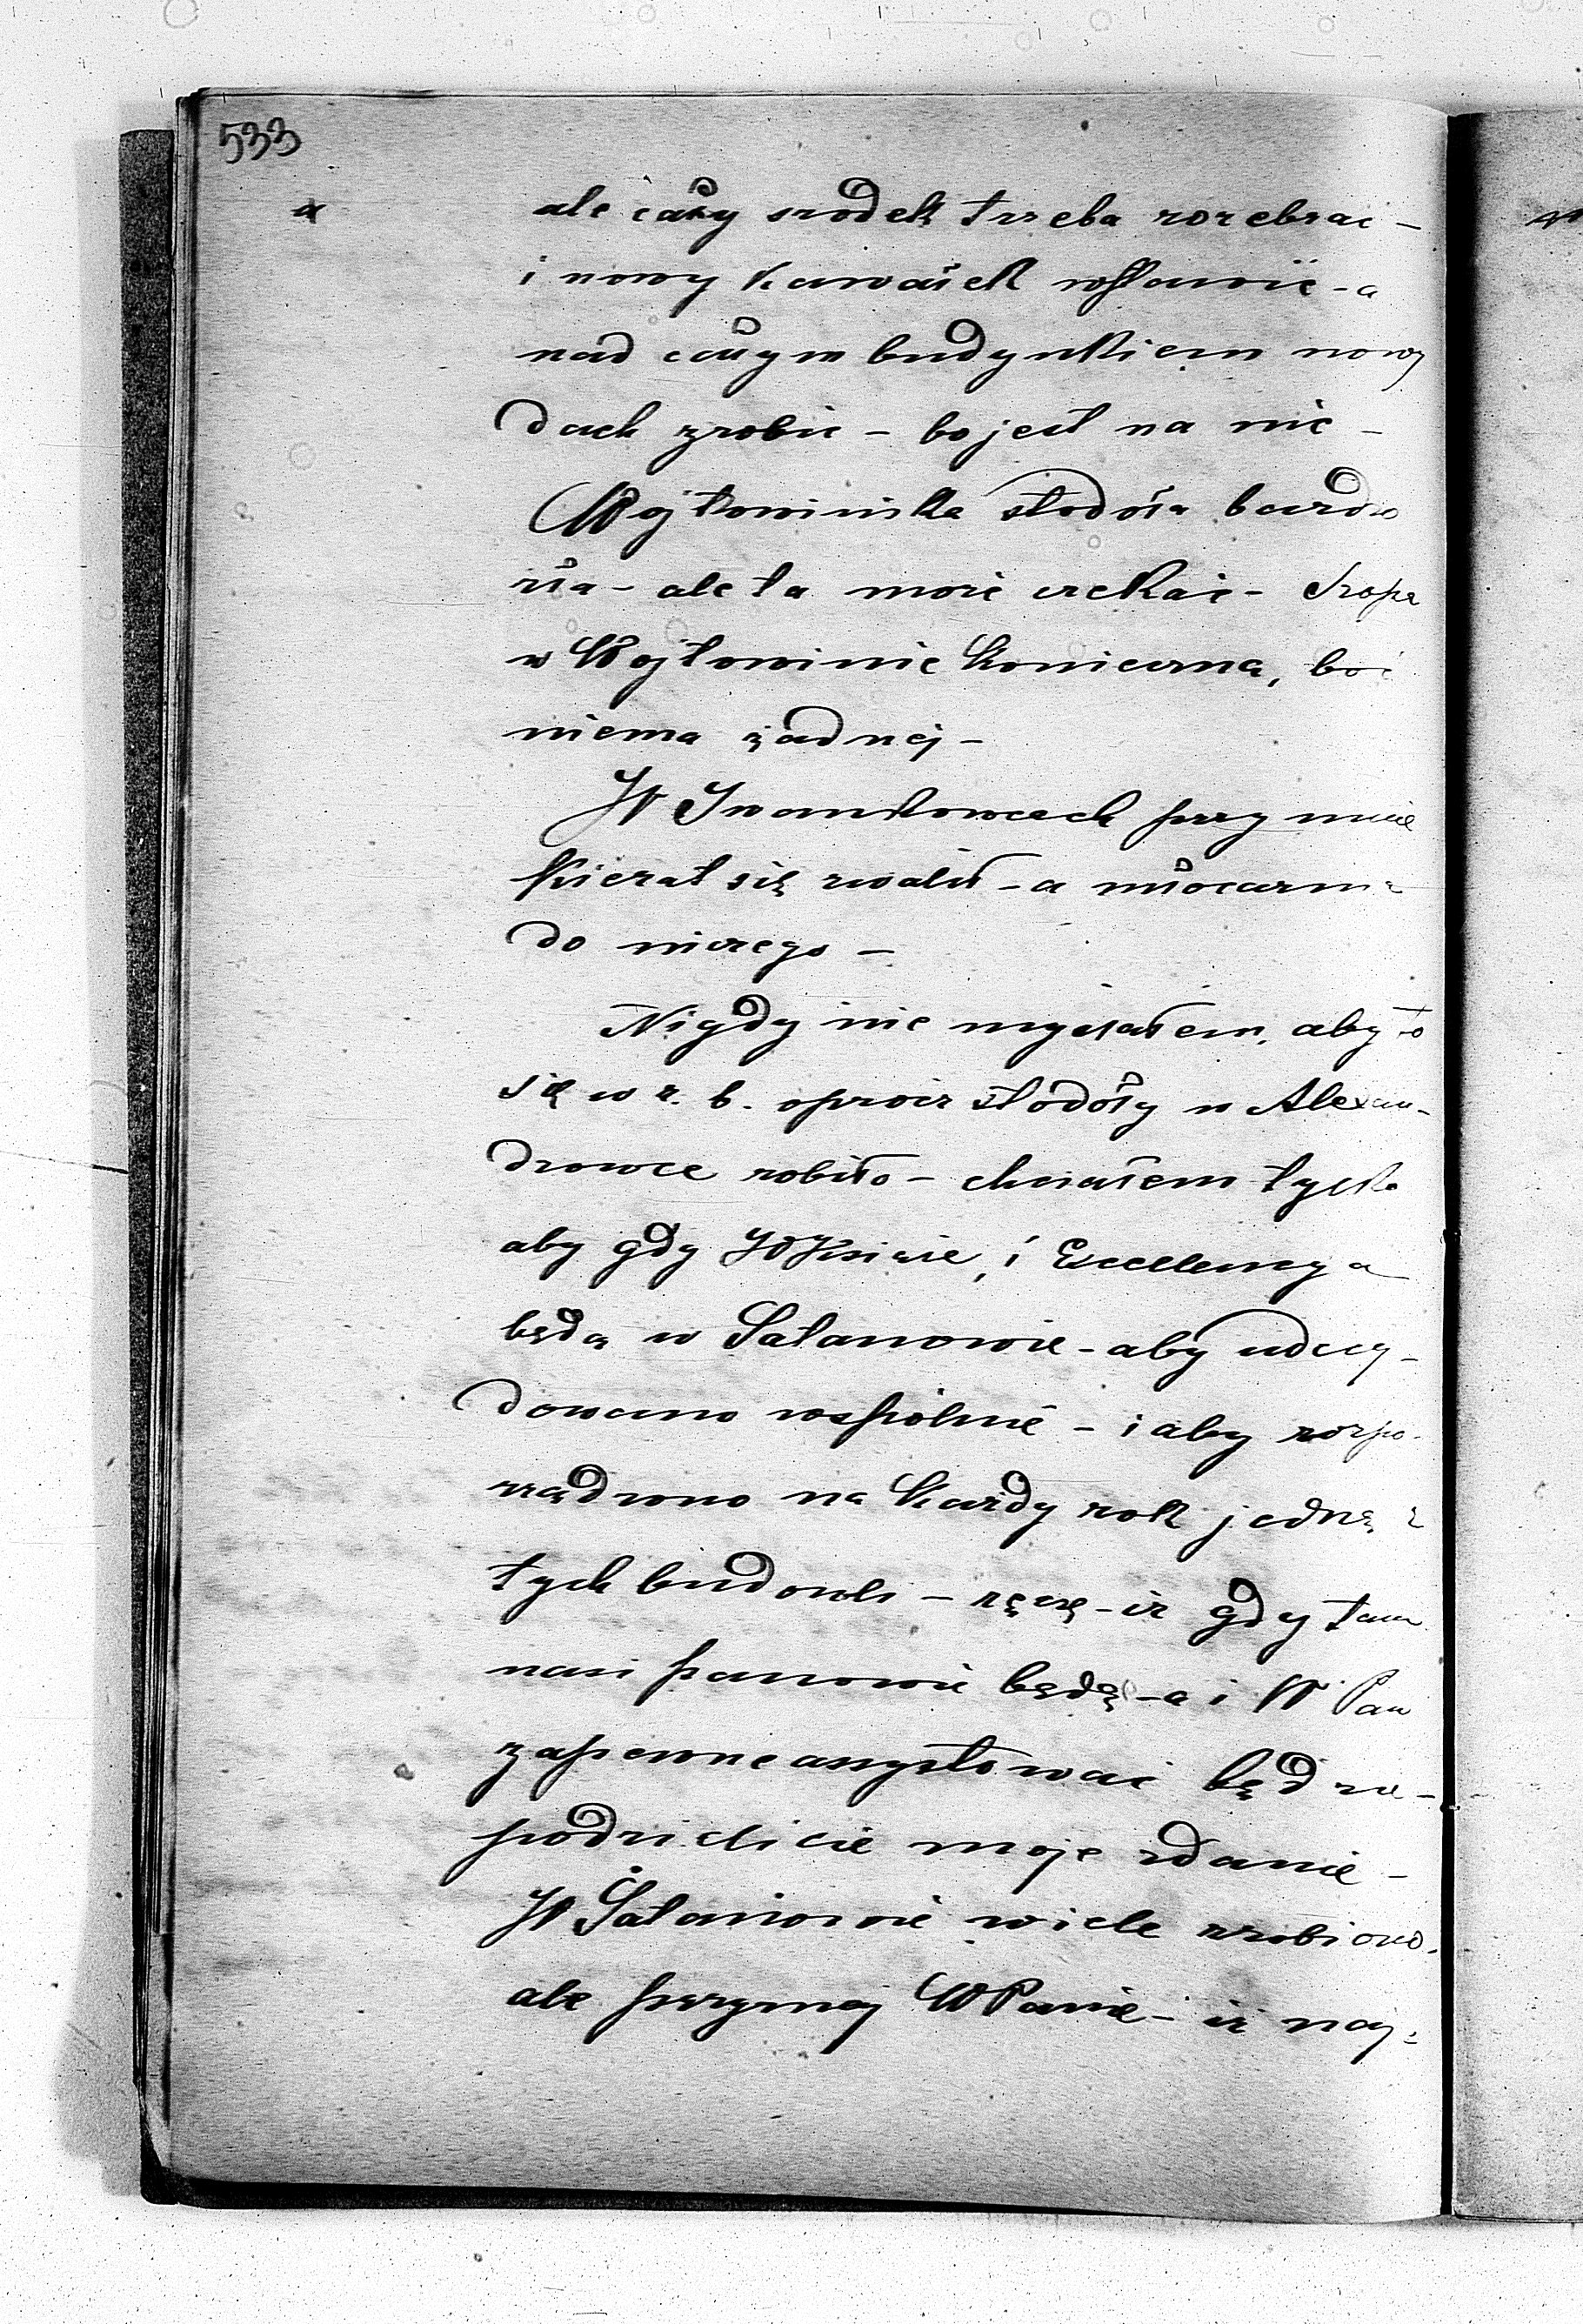 533
a
ale cały srodek trzeba rozebrać –
i nowy kawałek wstawić – a
nad całym budynkiem nowy
dach zrobić – bo jest na nic –
Wojtowińska stodoła bardzo
zła – ale ta może czekać – Szopa
w Wojtowinie konieczna, bo
niema żadnej –
W Iwankowcach przy mnie
kierat się zwalił – a młocarnia
do niczego –
Nigdy nie myślałem, aby to
się w r. b. oprócz stodoły w Alexan-
drowce robiło – chciałem tylko
aby gdy JO Książe, i Excellencya
będą w Satanowie – aby udecy-
dowano wspólnie – i aby rozpo-
rządzono na każdy rok jedną z
tych budowli – ręczę – iż gdy tam
nasi panowie będą – a i W Pan
zapewne assystować będzie –
podzielicie moje zdanie –
W Satanowie wiele zrobiono,
ale przyznaj WPanie – iż naj-